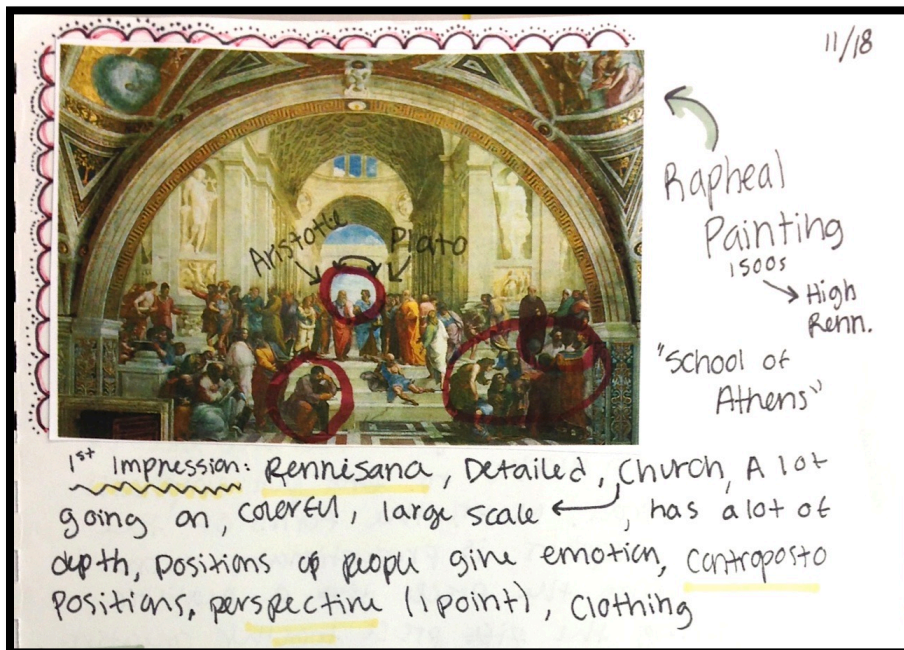 11/18
Rapheal
Painting
1500s
High
Renn.
"School of
Athens"
Aristotle
Plato
1st Impression: Rennisana, Detailed, Church, A lot
going on, colorful, large scale, has a lot of
depth, Positions of people give emotion, Controposto
Positions, perspective (1 point), Clothing